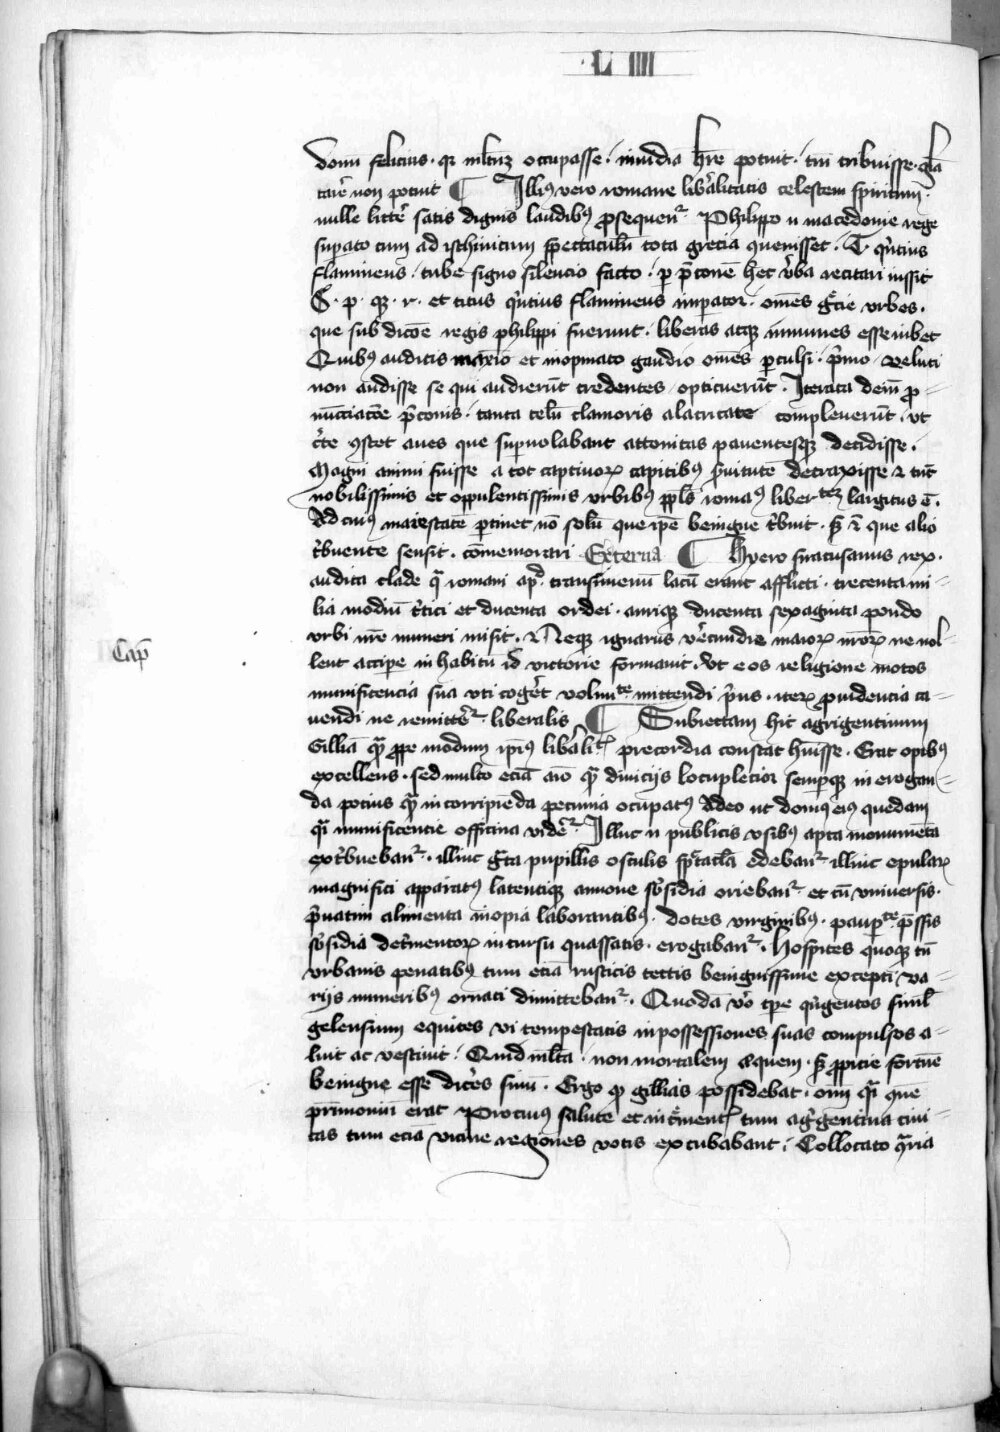 L IIII
donu felicius · qr mltuȝ occupasse · inuidiā hr̄e potuit · tm̄ tribuisse · gl̄a
tare non potuit ¶ Illiꝰ vero romane libalitatis celestem spiritum ·
nulle litter̄ satis dignis laudibꝰ ꝓsequenr̄ Philippo n macedonie rege
supato cum ad ischinicum spectaculū tota grecia quenisset · T · qͥntius
flamineus · tube signo silencio facto · ꝑ p̄conē hec v̄ba recitari iussit
S · p · qȝ · r · et titus qͥntius flamineus imꝑator · om̄es gͣcie vrbes ·
que sub dicōe regis philippi fuerunt · liberas atqȝ inmunes esse iubet
Quibꝰ auditis maxīo et inopinato gaudio om̄es ꝑculsi · pͥmo veluti
non audisse se qui audierūt credentes · opticuerūt · Iterata dein̄ ꝓ-
nūcciacōe p̄conis · tanta celū clamoris alacritate compleuerūt · vt
cͤte ꝯstet aues que suꝑuolabant attonitas pauentesqȝ decidisse ·
Magni animi fuisse a tot captiuoꝝ capitibꝰ ẜuitutē detraxisse ꝛ tūc
nobilissimis et oppulentissimis vrbibꝰ ppl̄s romaꝰ libertateȝ largitus ē ·
Ad cuiꝰ maiestatē ꝑtinet nō solū que ip̄e benigne tͥbuit · sȝ ꝛ que alio
tͥbuente sensit · cōmemorari Externa ¶ Hyero siracusanus rex ·
audita clade qͣ romani apᵈ transimenū lacū erant afflicti · trecenta mi-
lia modiū tͥtici et ducenta ordei · auriqȝ ducenta sexaginta pondo
vrbi nr̄e muneri misit · Neqȝ ignarus vͤcundie maioꝝ nr̄oꝝ ne nol-
lent accipe in habitū id victorie formauit · vt eos religione motos
munificencia sua vti cogeͤt volūtate mittendi pͥus · iteꝝ ꝓuidencia ca-
uendi ne remitterͬ liberalis ¶ Subiectam hic agrigentinum
Cap̄
Gilliā qͣ ꝓpe modum ip̄iꝰ libalitatꝭ precordia constat h̄uisse · Erat opibꝰ
excellens · sed multo eciā aīo qͣ diuicijs locupletior semꝑqȝ in erogan-
da pocius qͣ in corripiēda pecunia ocupatꝰ Adeo ut domꝰ eiꝰ quedam
qͣi munificentie officina viderͬ Illuc n publicis vsibꝰ apta monumēta
extͥbuebanͬ · illinc gͣta pupillis osculis spͤctacl̄a edebanͬ illinc epulaꝝ
magnifici apparatꝰ latentiqȝ annone sb̄sidia oriebanͬ · et cū vniuersis ·
pͥuatim alimenta inopia laborantibꝰ · dotes virginibꝰ · pauꝑtate p̄ssis
sb̄sidia detͥmentoꝝ in cursu quassatis · erogabanͬ · Hospites quoqȝ tū
vrbanis penatibꝰ tum eciā rusticis tectis benignissime excepti va-
rijs muneribꝰ ornati dimittebanͬ · Quodā vͦ tp̄e qͥngentos simil̄
gelensium equites vi tempestatis in possessiones suas compulsos a-
luit ac vestiuit · Quid ml̄ta · non mortalem aliquem · sȝ ꝓpicie fortūe
benigne esse diceͤs sinū · Ergo qȝ gillias possidebat · om̄i qͣi quē
prͥmoniū erat Prociuꝰ salute et incͤmentꝭ tum agͥgentina ciui-
tas tum eciā vicine regiones votis excubabant · Collocato qͣria